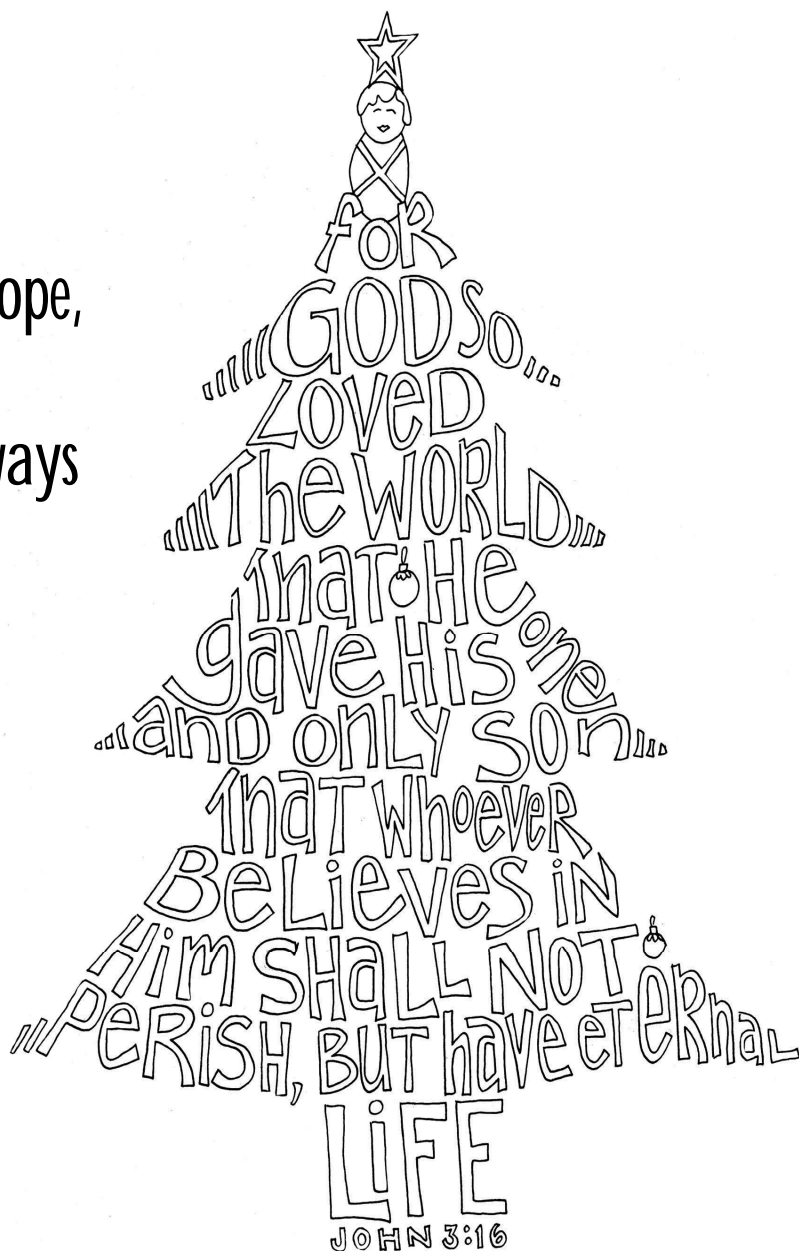 ope,
ways
foR
GOD SO
LOVeD
The WORLD
That He
gave His one
and only son
That Whoever
BeLieveS iN
Him SHaLL NoT
PeRiSH, BUT have eTeRnaL
LiFE
JOHN 3:16